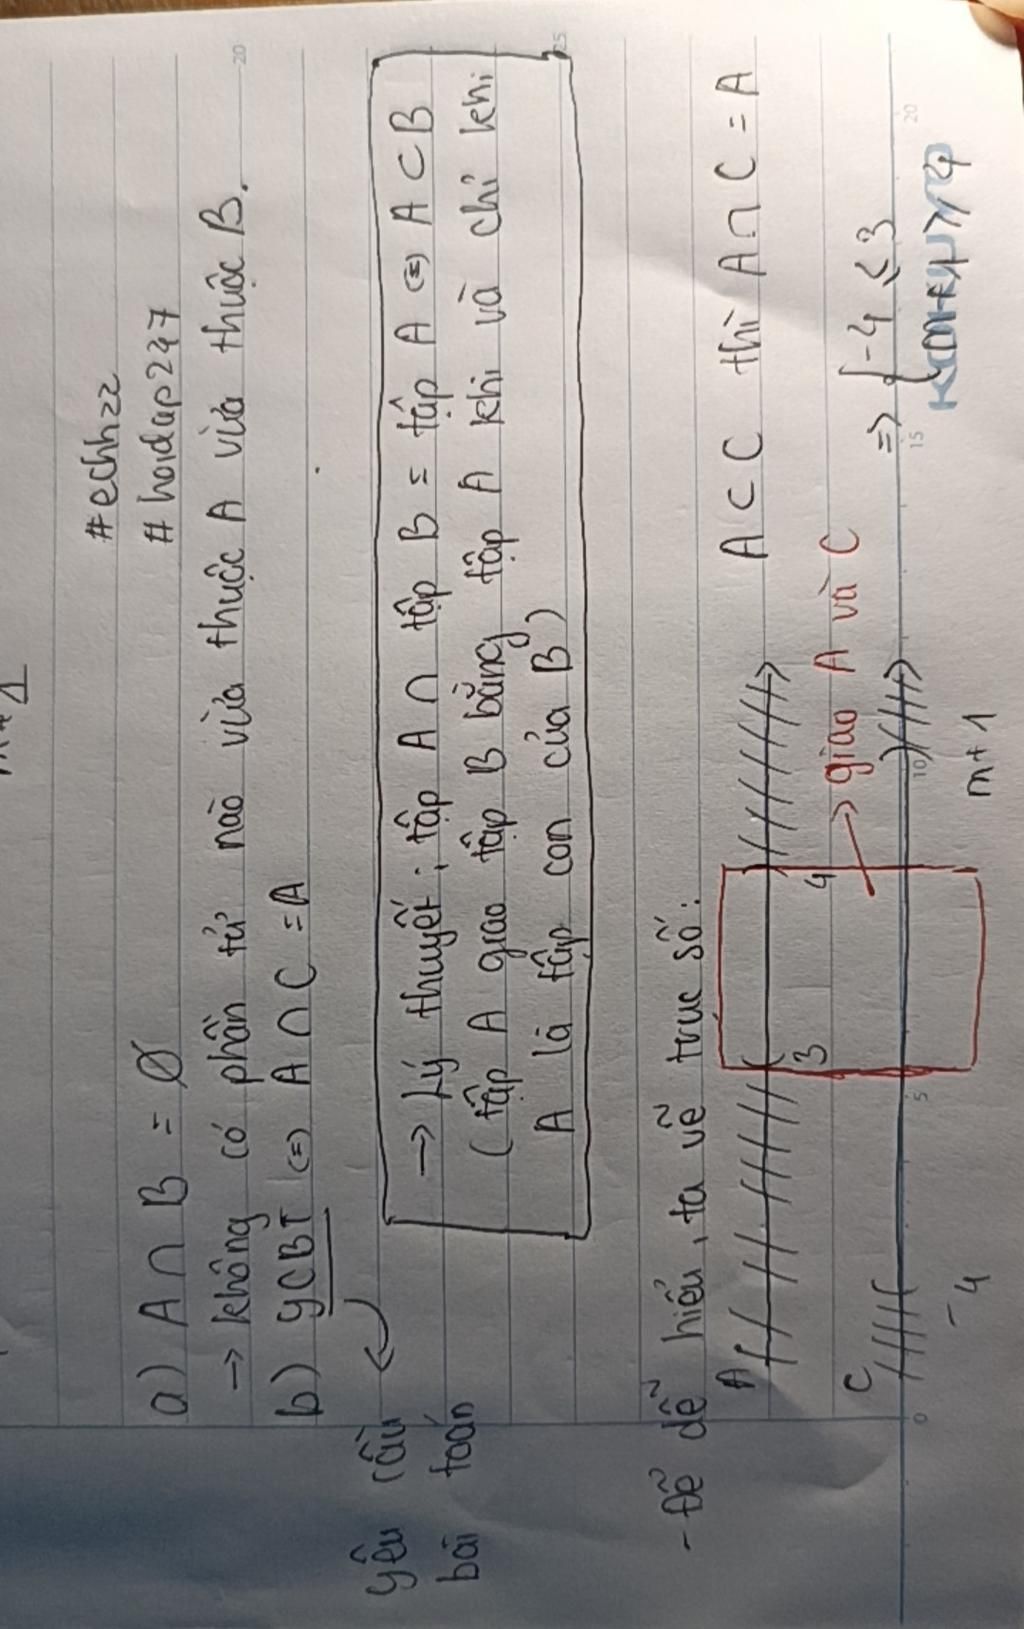 #echh22
a) A ∩ B = Ø # hoidap247
→ không có phần tử nào vừa thuộc A vừa thuộc B.
b) YCBT (=) A ∩ C = A
yêu cầu
bài toán
→ Lý thuyết: tập A ∩ tập B = tập A (=) A ⊂ B
(tập A giao tập B bằng tập A khi và chỉ khi
A là tập con của B)
- Để dễ hiểu, ta vẽ trục số:
A A ⊂ C thì A ∩ C = A
3 4
→ giao A và C
C
-4 m+1
=> { -4 ≤ 3
m+1 ≥ 4
20
25
0 5 10 15 20